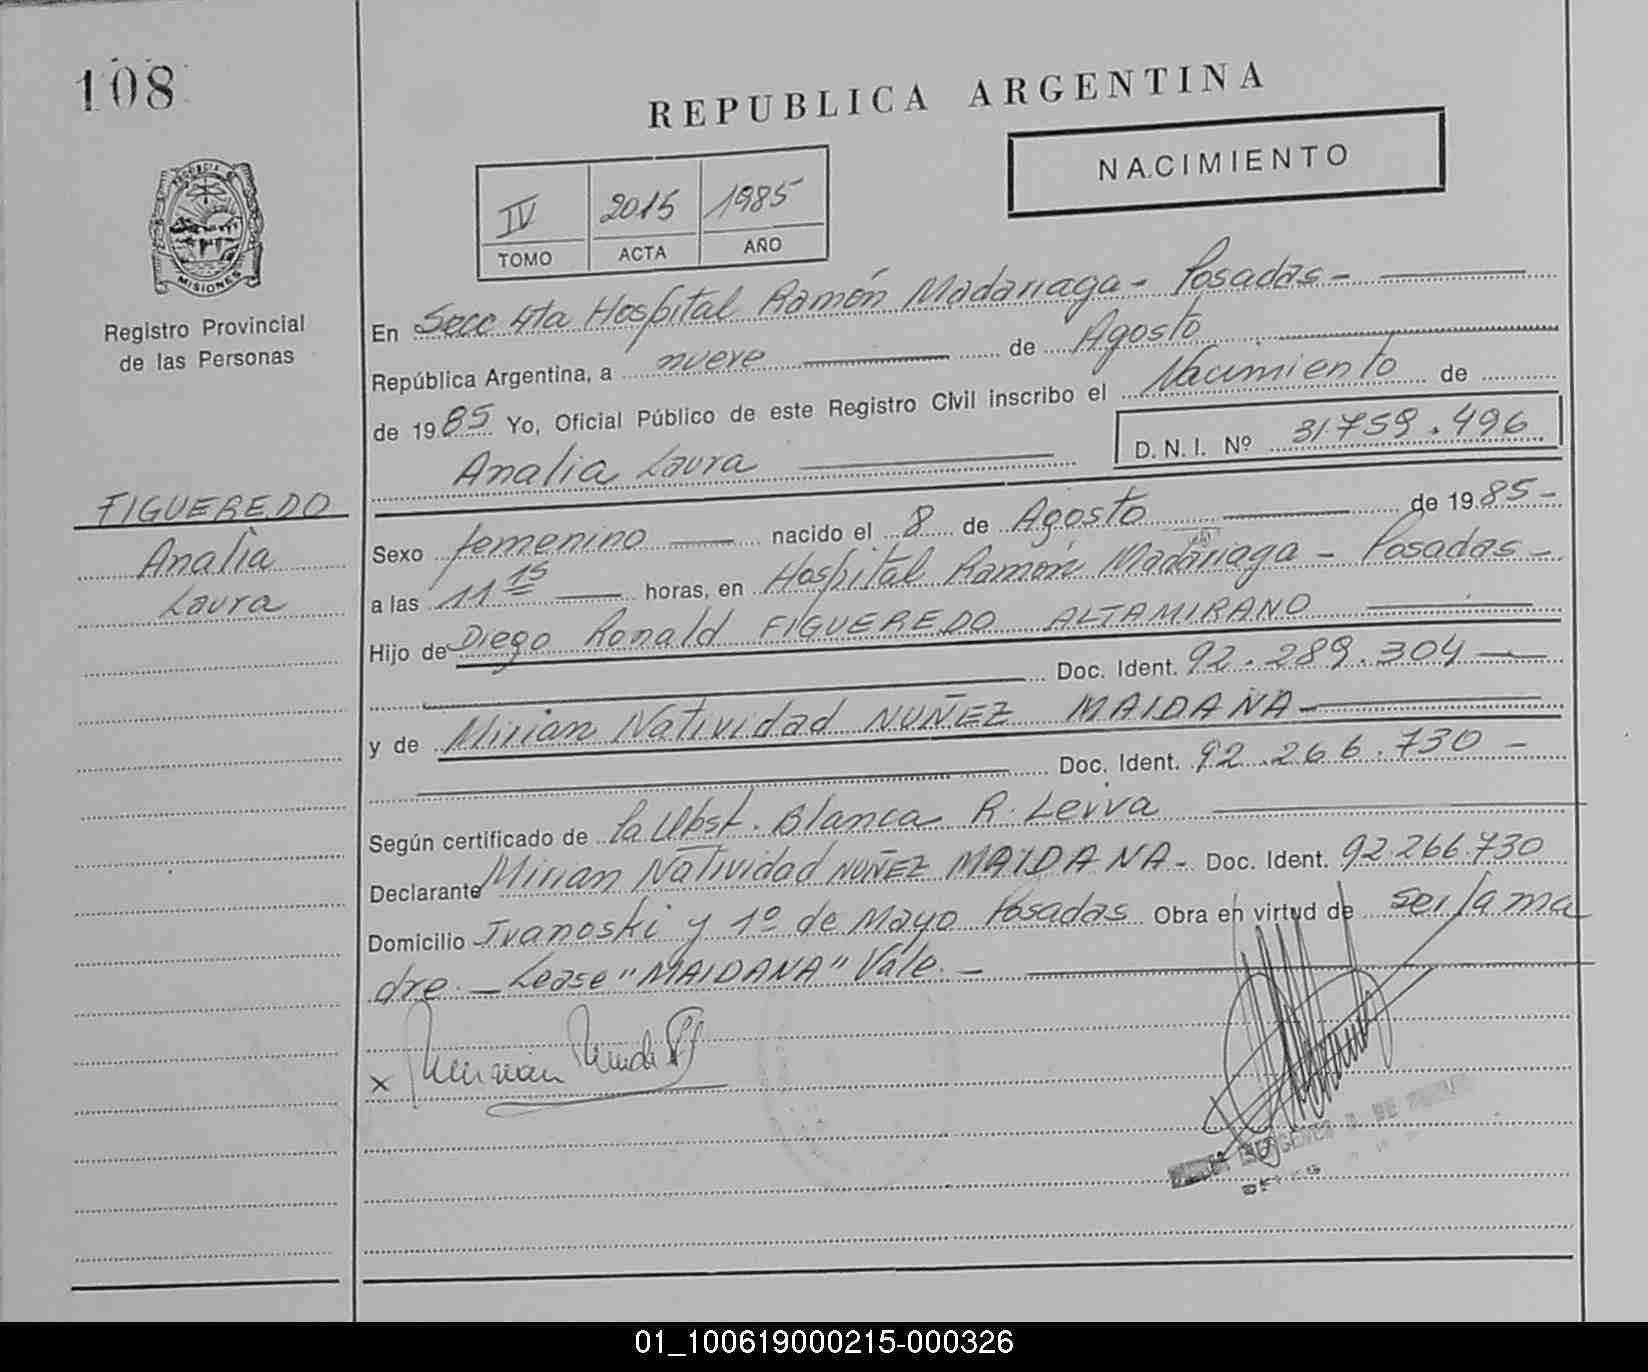 108
REPUBLICA ARGENTINA
NACIMIENTO
IV 2015 1985
TOMO ACTA AÑO
PROVINCIA DE
MISIONES
Registro Provincial
de las Personas
En Secc 4ta Hospital Ramón Madariaga - Posadas -
República Argentina, a nueve de Agosto
de 1985 Yo, Oficial Público de este Registro Civil inscribo el Nacimiento de
Analia Laura D.N.I. Nº 31.759.496
FIGUEREDO
Analia
Laura
Sexo femenino nacido el 8 de Agosto de 1985 -
a las 11 15 horas, en Hospital Ramón Madariaga - Posadas -
Hijo de Diego Ronald FIGUEREDO ALTAMIRANO
Doc. Ident. 92.289.304
y de Mirian Natividad NUÑEZ MAIDANA -
Doc. Ident. 92.266.730 -
Según certificado de la Obst. Blanca R. Leiva
Declarante Mirian Natividad NUÑEZ MAIDANA - Doc. Ident. 92266.730
Domicilio Ivanoski y 1º de Mayo Posadas Obra en virtud de ser la ma
dre. - Lease "MAIDANA" Vale. -
x
01_100619000215-000326